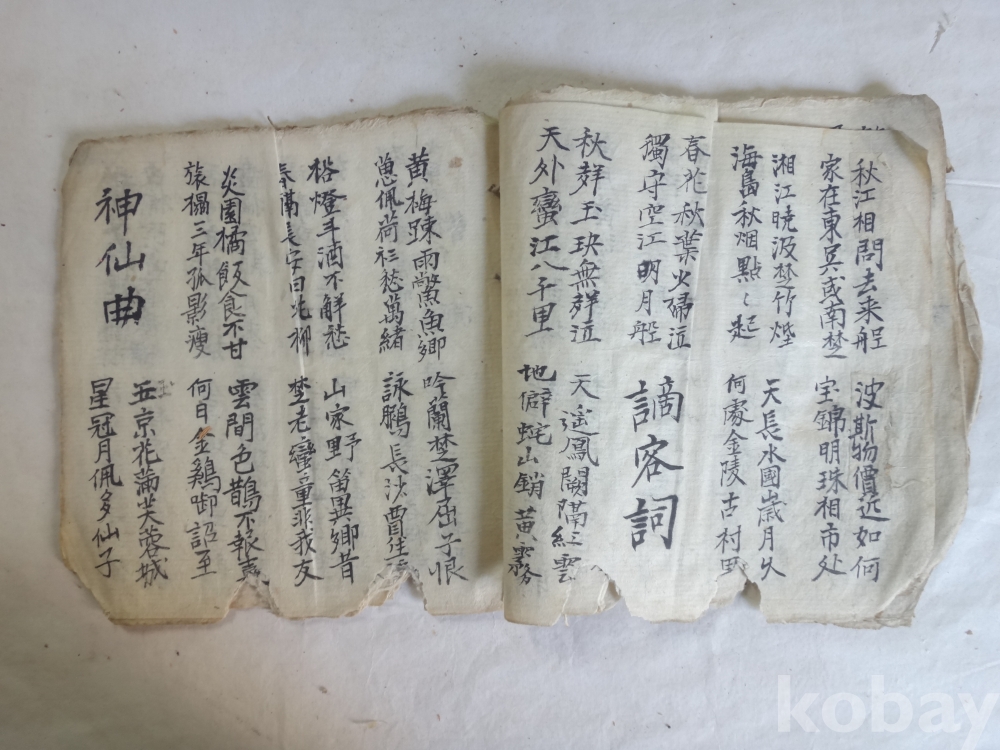 秋江相問去来舡 波斯物價近如何
家在東吳或南楚 宝錦明珠相市处
湘江曉汲楚竹烟 天長水國歲月久
海島秋烟點々起 何處金陵古村里
春花秋葉火婦泣
獨守空江明月船
謫客詞
秋群玉玦無群泣 天遙鳳闕隔紅雲
天外蠻江八千里 地僻蛇山銷黄霧
黄梅踈雨驚魚鄉 吟蘭楚澤屈子恨
蕙佩荷衫愁萬緒 詠鵬長沙賈生
榕燈斗酒不解愁 山家野笛異鄉昔
春隔長安日 楚老蠻童非我友
炎園橘飯食不甘 雲間色鵲不報喜
旅榻三年孤影瘦 何日金鷄啣詔至
神仙曲
京花滿芙蓉城
星冠月佩多仙子
kobay